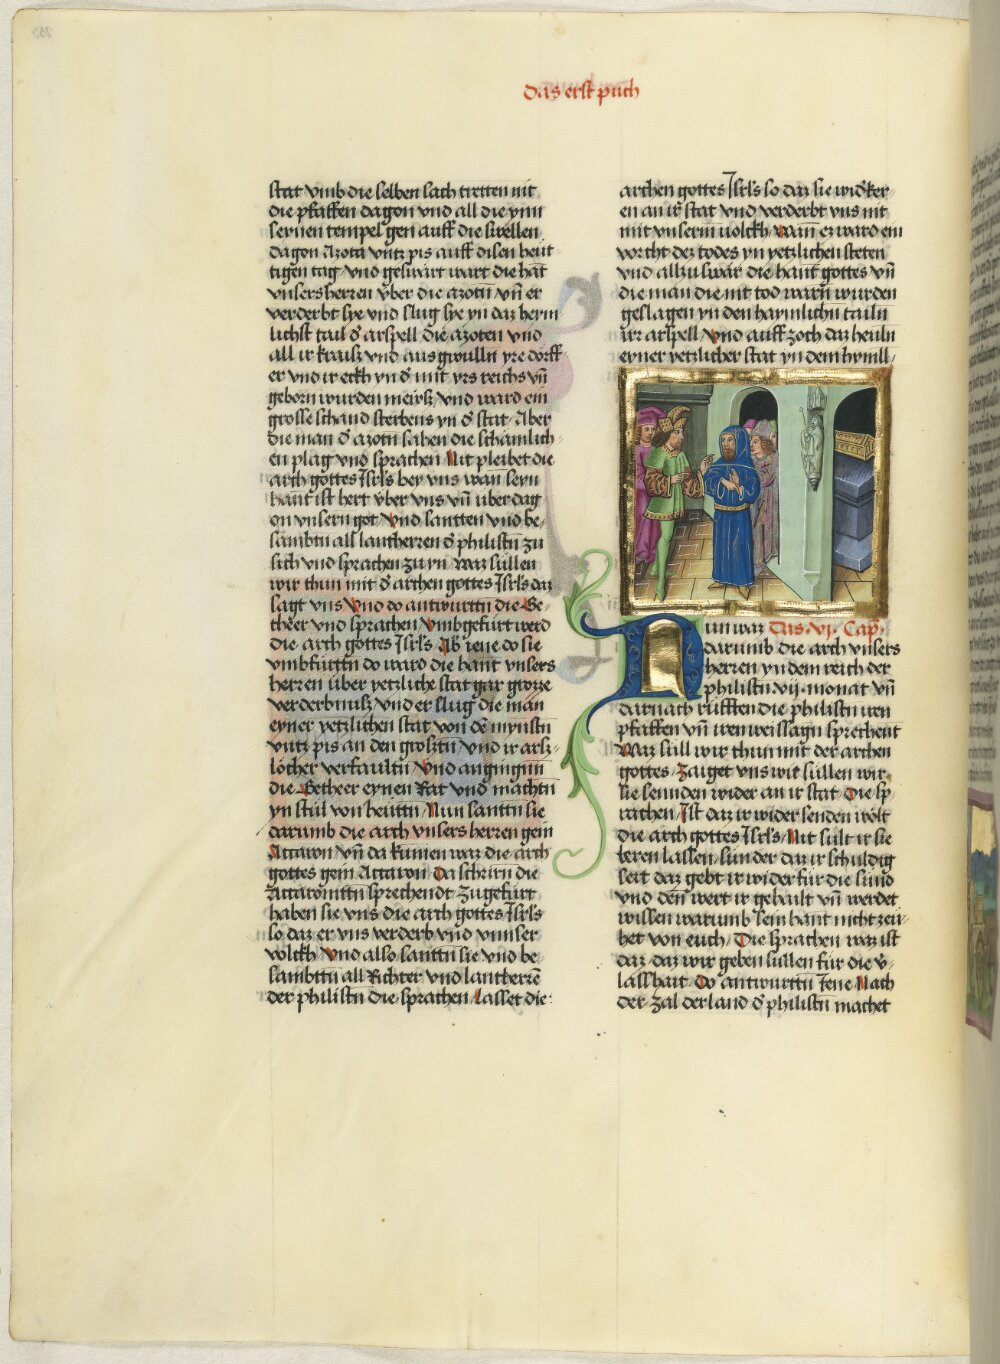 das erst puch
stat vmb die selben sach tretten nit
die pfaffen dagon vnd all die ynn
seynen tempel gen auff die swellen
dagon Azoti vntz pis auff disen heut
tigen tag vnd geswärt wart die hāt
vnsersherren vber die azotn vn̄ er
verderbt sye vnd slug sye yn daz heym
lichst tail d̕ arspell die azoten vnd
all ir kraiß vnd ausgwulln yre dörff
er vnd ir eckh yn d̕ mit yrs reichs vn̄
geborn wurden mewß vnd ward ein
grosse schand sterbens yn d̕ stat Aber
die man d̕ azotn sahen die schamlich
en plag vnd sprachen Nit pleibet die
arch gottes Isrl's bey vns wan seyn
hant ist hert vber vns vn̄ vber dag
on vnsern got Vnd santten vnd be
sambtn all lantherren d̕ philistn zu
sich vnd sprachen zu yn waz süllen
wir thun mit d̕ archen gottes Isrl's daz
sagt vns Vnd do antwurttn die Ge
theer vnd sprachen Vmbgefürt werd
die arch gottes Isrl's Als iene do sie
vmbfürttn do ward die hant vnsers
herren über yetzliche stat gar grozze
verderbnuß vnd er slug die man
eyner yetzlichen stat von dē mynstn
vntz pis an den grostn vnd ir ars
löcher verfaultn Vnd angingnn
die Getheer eynen Rat vnd machtn
yn stül von heüttn Nun santtn sie
darumb die arch vnsers herren gein
Accaron vn̄ da kumen waz die arch
gottes gein Accaron Da schrirn die
Accaronittn sprechendt Zugefürt
haben sie vns die arch gottes Isrl's
so daz er vns verderb vnd vnnser
volckh Vnd also santtn sie vnd be
sambttn all Richter vnd lantherrē
der philistn die sprachen Lasset die
archen gottes Isrl's so daz sie wid̕ker
en an ir stat vnd verderbt vns nit
mit vnserm uolckh Wan ez ward ein
vorcht dez todes yn yetzlichen steten
vnd allzu swär die hant gottes vn̄
die man die nit tod warn wurden
geslagen yn den haymlichn tailn
irr arspell Vnd auff zoch daz heüln
eyner yetzlicher stat yn dem hymll
Nun waz Das .vj. Cap
darumb die arch vnsers
herren yn dem reich der
philistn vij monat vn̄
darnach rüfften die philistn iren
pfaffen vn̄ iren weissagn sprechent
Waz süll wir thun mit der archen
gottes Zaiget vns wie süllen wir
sie sennden wider an ir stat Die sp
rachen Ist daz ir wider senden wölt
die arch gottes Isrl's Nit sült ir sie
leren lassen sunder daz ir schuldig
seit daz gebt ir wider für die sünd
vnd den̄ wert ir gehailt vn̄ werdet
wissen warumb sein hant nicht zeu
het von euch Die sprachen waz ist
daz daz wir geben süllen für die v̕
lasshait Do antwurttn Iene Nach
der zal der land d̕ philistn machet